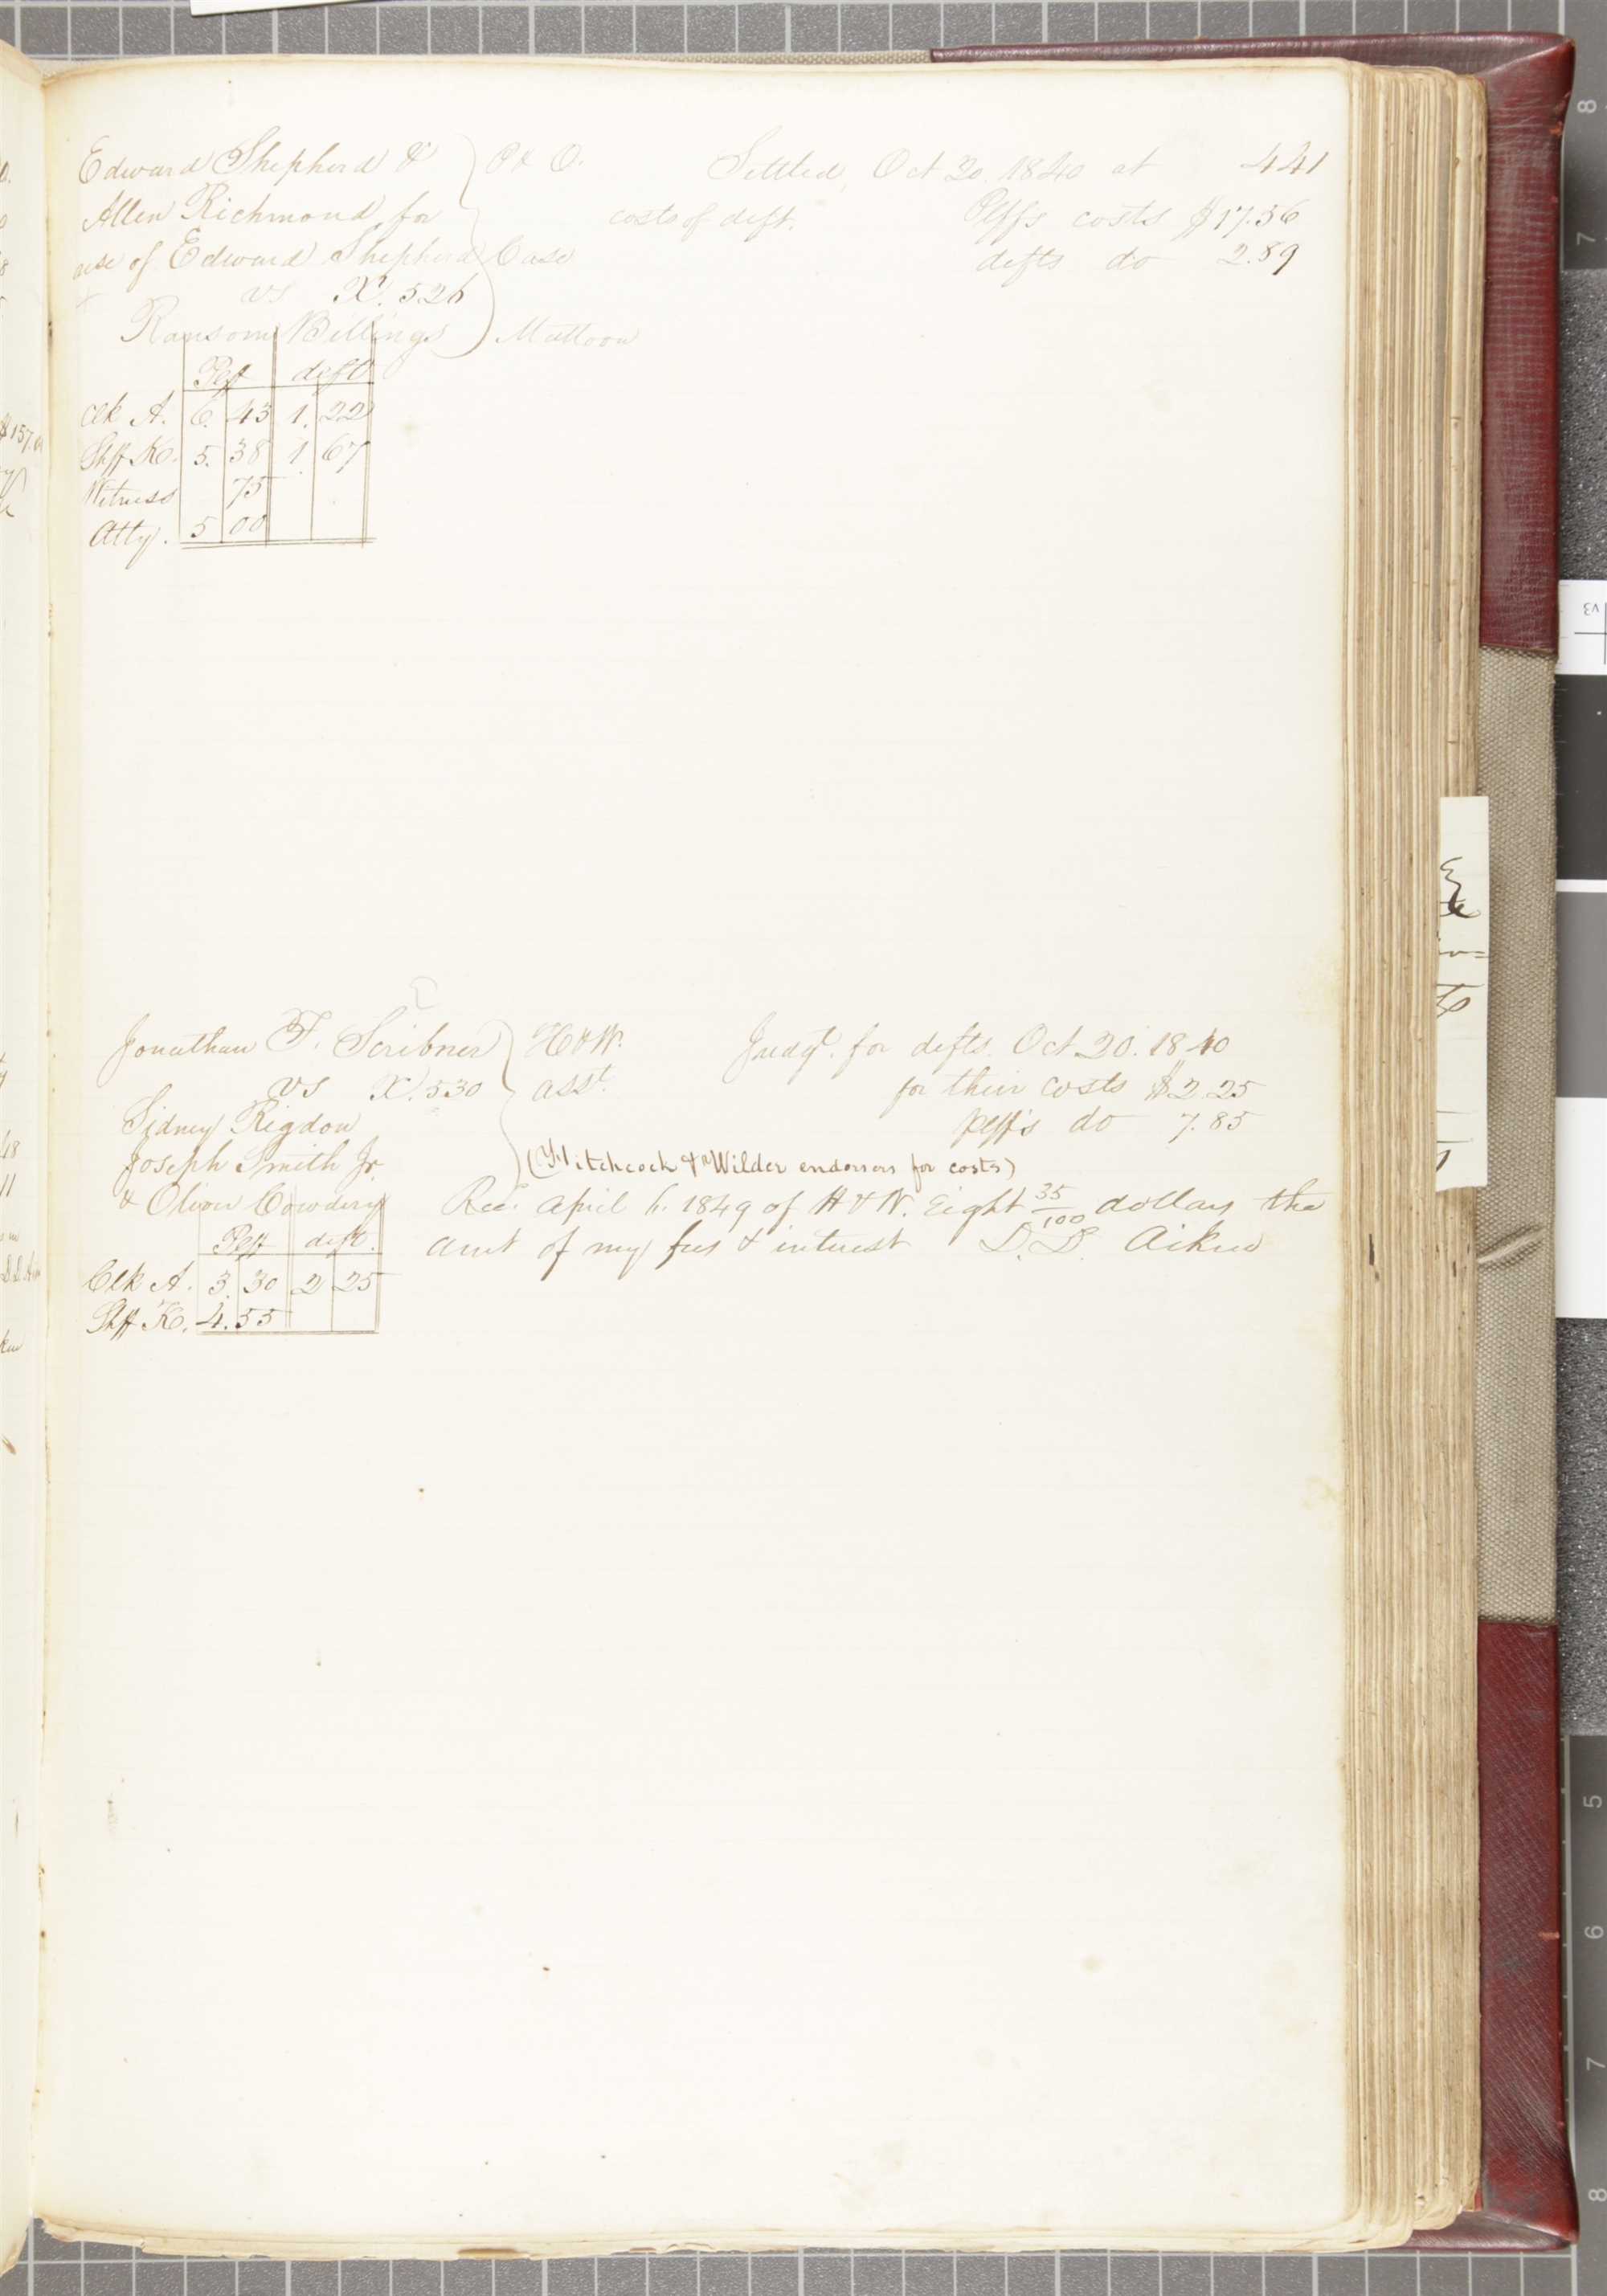 441
Edward Shepherd & P & O. Settled, Oct 20. 1840 at
Allen Richmond for costs of deft. Plff's costs $17.56
use of Edward Shepherd Case defts do 2.89
vs X. 526
Ransom Billings Mattoon
Plff deft
Clk A. 6. 43 1. 22
Shff K. 5. 38 1. 67
Witness 75
Atty. 5 00
Jonathan F. Scribner H & W. Judgt. for defts. Oct 20. 1840
vs X. 530 asst. for their costs $2.25
Sidney Rigdon plff's do 7.85
Joseph Smith Jr. (Hitchcock & Wilder endorsers for costs)
& Oliver Cowdery Recd. April 6. 1849 of H & W. Eight 35/100 dollars the
Plff deft. amt of my fees & interest D. D. Aiken
Clk A. 3. 30 2 25
Shff K. 4. 55